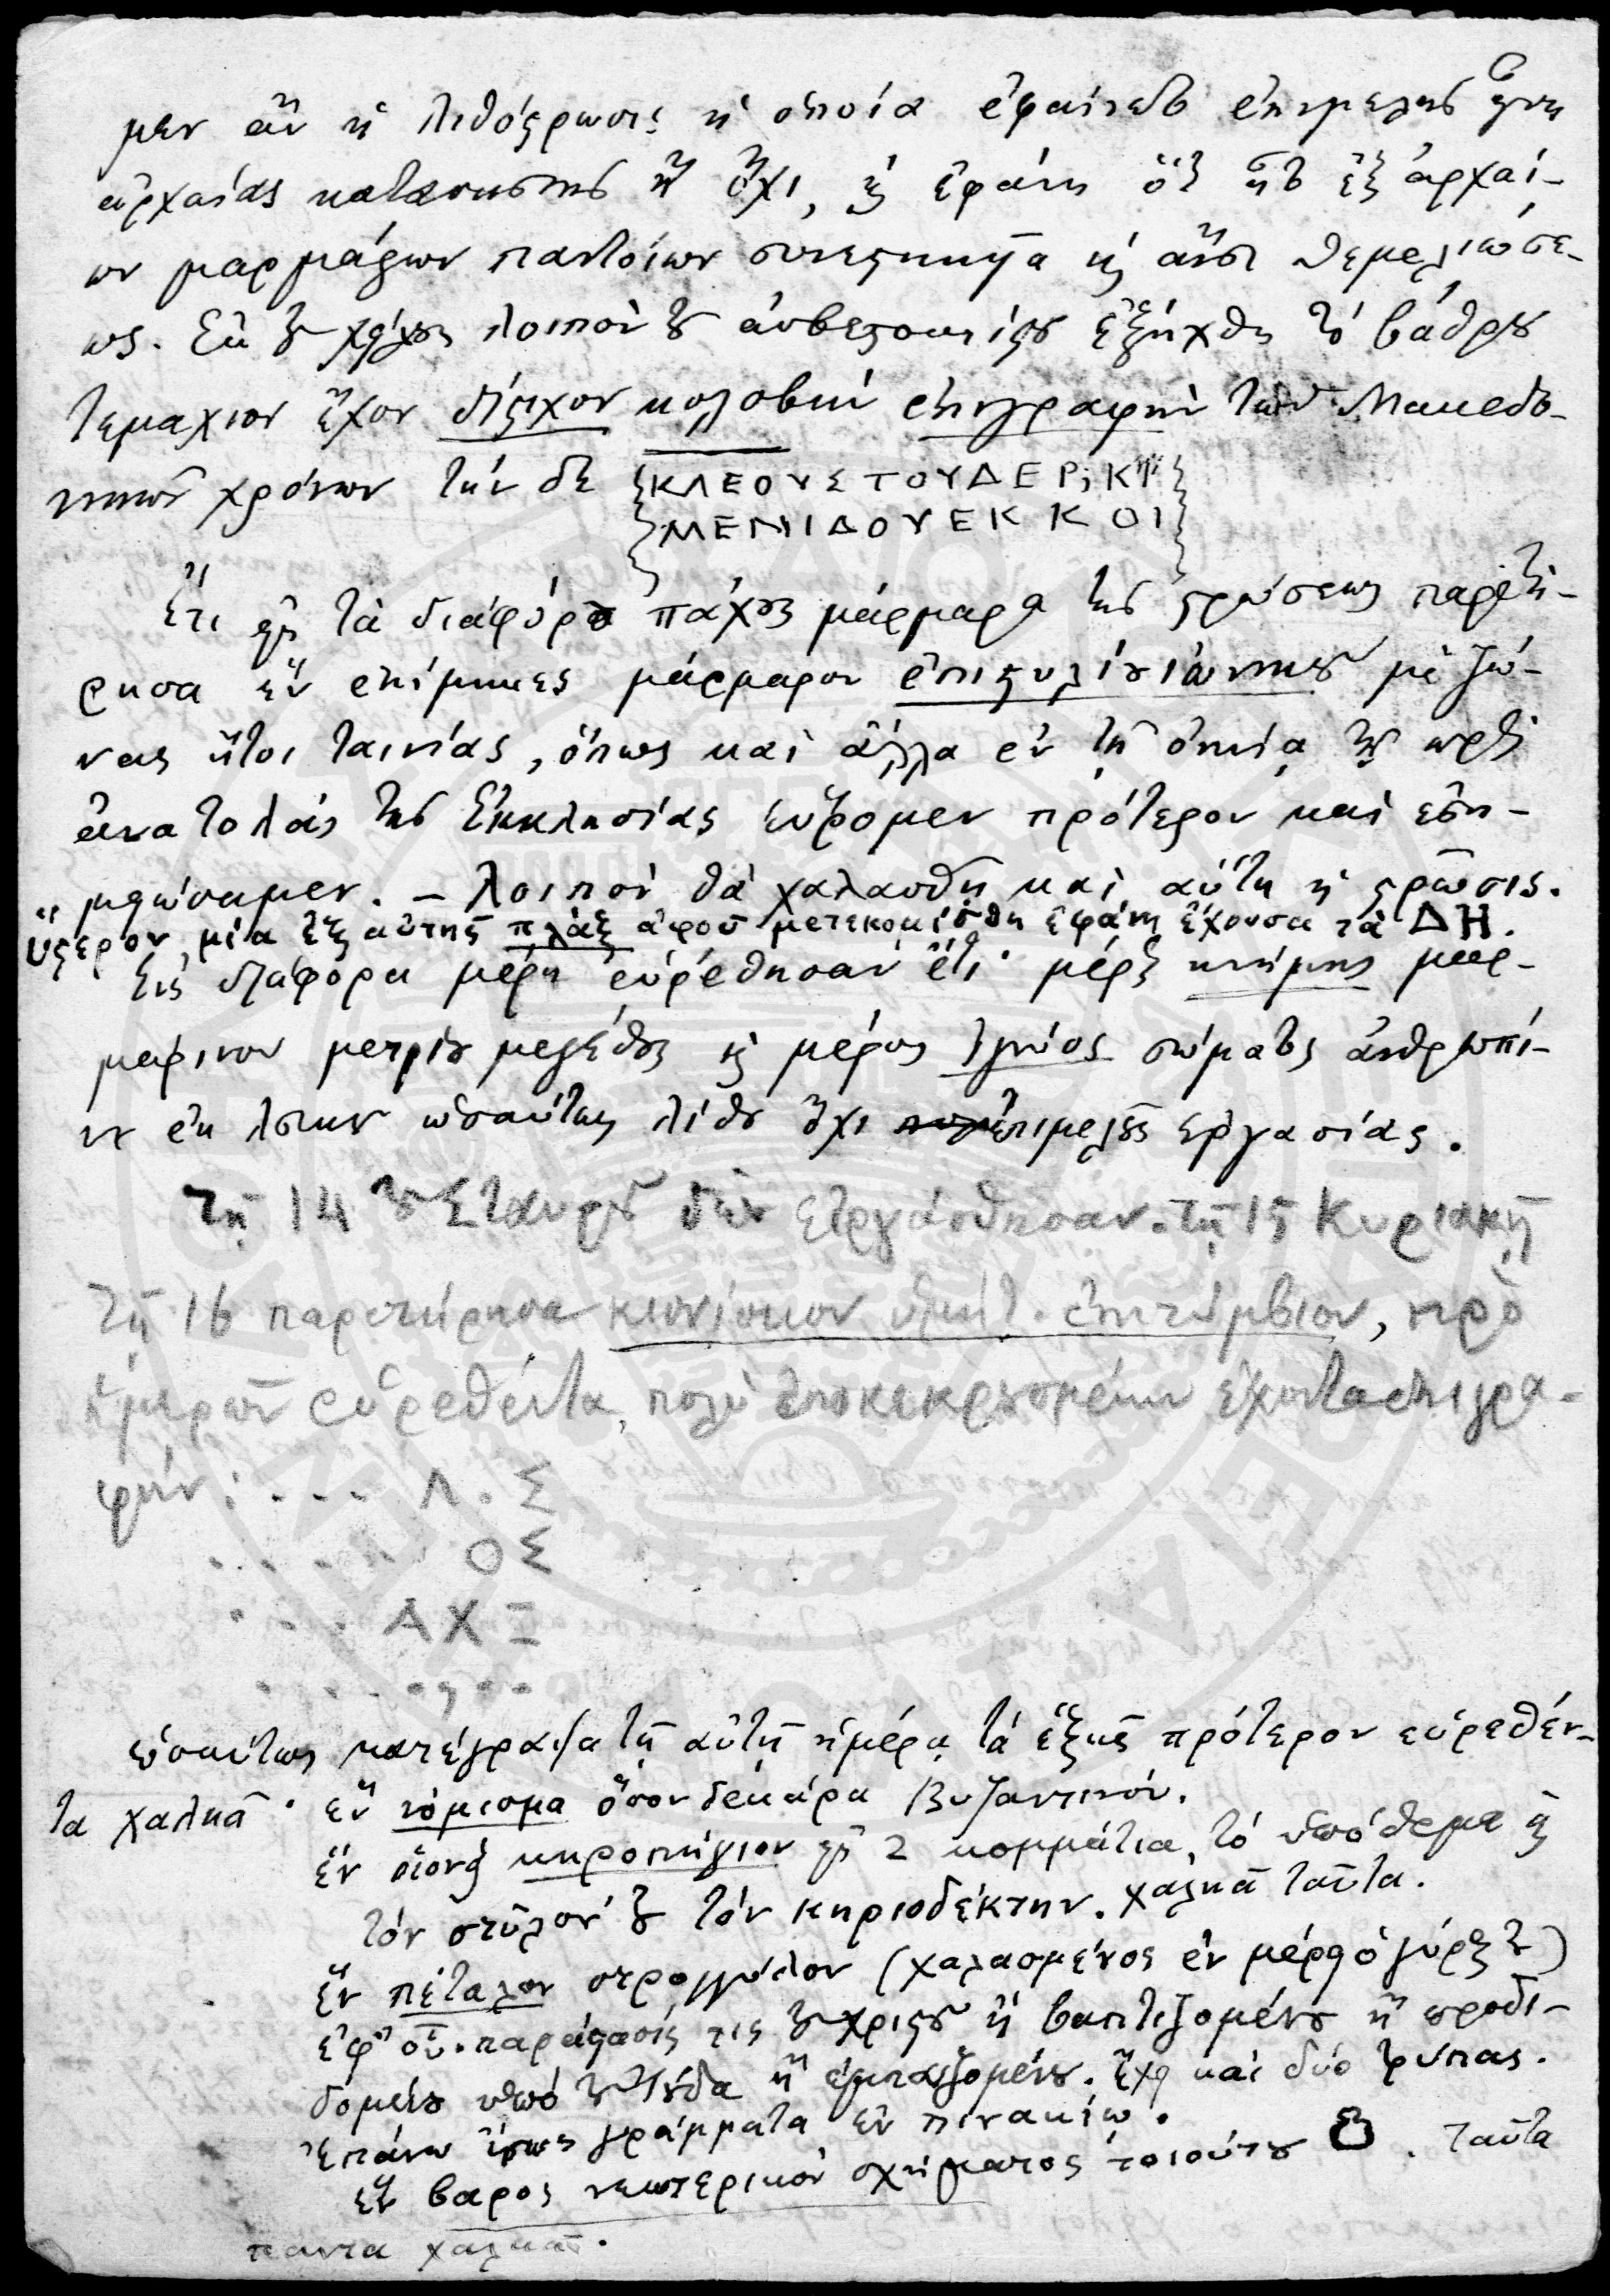 μεν ἂν ἡ λιθόστρωσις ἡ ὁποία ἐφαίνετο ἐπιμελής ἦτον
ἀρχαίας κατασκευῆς ἢ ὄχι, καὶ ἐφάνη ὅτι ἦτο ἐξ ἀρχαί-
ων μαρμάρων παντοίων συνεστηκυῖα καὶ ἄνευ θεμελιώσε-
ως. Ἐκ τοῦ λοιπὸν τοῦ ἀσβεστοκτίστου ἐξήχθη τὸ βάθρου
τεμάχιον ἔχον δίστιχον κολοβὴν ἐπιγραφὴν τῶν Μακεδο-
νικῶν χρόνων τήν δε {ΚΛΕΟΥΣΤΟΥΔΕΡ;ΚΙ
ΜΕΝΙΔΟΥΕΚ ΚΟΙ}
Ἔτι εἰς τὰ διάφορα πάχους μάρμαρα τῆς στρώσεως παρετή-
ρησα ἓν ἐπίμηκες μάρμαρον ἐπιστυλίου ἰωνικοῦ μὲ ζώ-
νας ἤτοι ταινίας, ὅπως καὶ ἄλλα ἐν τῇ οἰκίᾳ τῇ πρὸς
ἀνατολὰς τῆς Ἐκκλησίας εὕρομεν πρότερον καὶ ἐση-
μειώσαμεν. – Λοιπὸν θὰ χαλασθῇ καὶ αὐτὴ ἡ στρῶσις.
ὕστερον μία ἐξ αὐτῆς πλάξ ἀφοῦ μετεκομίσθη ἐφάνη ἔχουσα τὰ ΔΗ.
Εἰς διάφορα μέρη εὑρέθησαν ἔτι μέρος κνήμης μαρ-
μαρίνου μετρίου μεγέθους καὶ μέρος ἰγνύος σώματος ἀνθρωπί-
νου ἐκ λευκοῦ ὡσαύτως λίθου ὄχι ἐπιμελοῦς ἐργασίας.
Τῇ 14 τοῦ Σταυροῦ δὲν εἰργάσθησαν. τῇ 15 Κυριακῇ
Τῇ 16 παρετήρησα κιονίσκον ὑμητ. ἐπιτύμβιον, πρὸ
ἡμερῶν εὑρεθέντα, πολὺ ἀποκεκρουσμένην ἔχοντα ἐπιγρα-
φήν: . . . . Λ . Σ
. . . . . ΟΣ
. . . . ΑΧΞ
. . . . . . . .
ὡσαύτως κατέγραψα τῇ αὐτῇ ἡμέρᾳ τὰ ἑξῆς πρότερον εὑρεθέν-
τα χαλκᾶ· ἓν νόμισμα ὅσον δεκάρα Βυζαντινόν.
ἓν οἱονεὶ κηροπήγιον εἰς 2 κομμάτια, τὸ ὑπόθεμα καὶ
τὸν στῦλον τοῦ τὸν κηριοδέκτην. χαλκᾶ ταῦτα.
ἓν πέταλον στρογγύλον (χαλασμένος ἐν μέρει ὁ γύρος του)
ἐφ' οὗ παράστασίς τις τοῦ Χριστοῦ ἢ βαπτιζομένου ἢ προδι-
δομένου ὑπὸ τοῦ Ἰούδα ἢ ἐμπαιζομένου. ἔχει καὶ δύο τρύπας.
Ἐπάνω ἴσως γράμματα ἐν πινακίῳ.
ἓν βάρος νεωτερικὸν σχήματος τοιούτου 8. ταῦτα
πάντα χαλκᾶ.